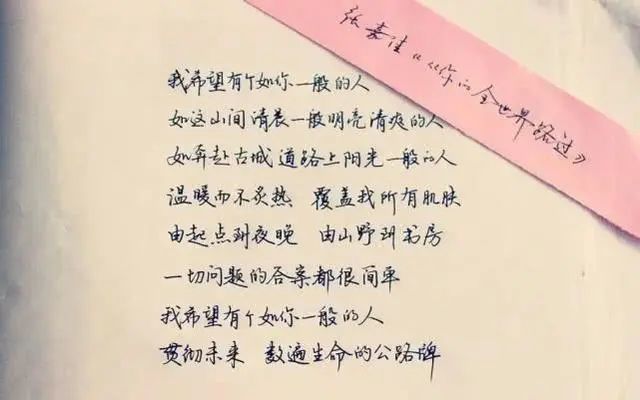 张嘉佳《从你的全世界路过》
我希望有个如你一般的人
如这山间清晨一般明亮清爽的人
如奔赴古城道路上阳光一般的人
温暖而不炙热 覆盖我所有肌肤
由起点到夜晚 由山野到书房
一切问题的答案都很简单
我希望有个如你一般的人
贯彻未来 数遍生命的公路牌